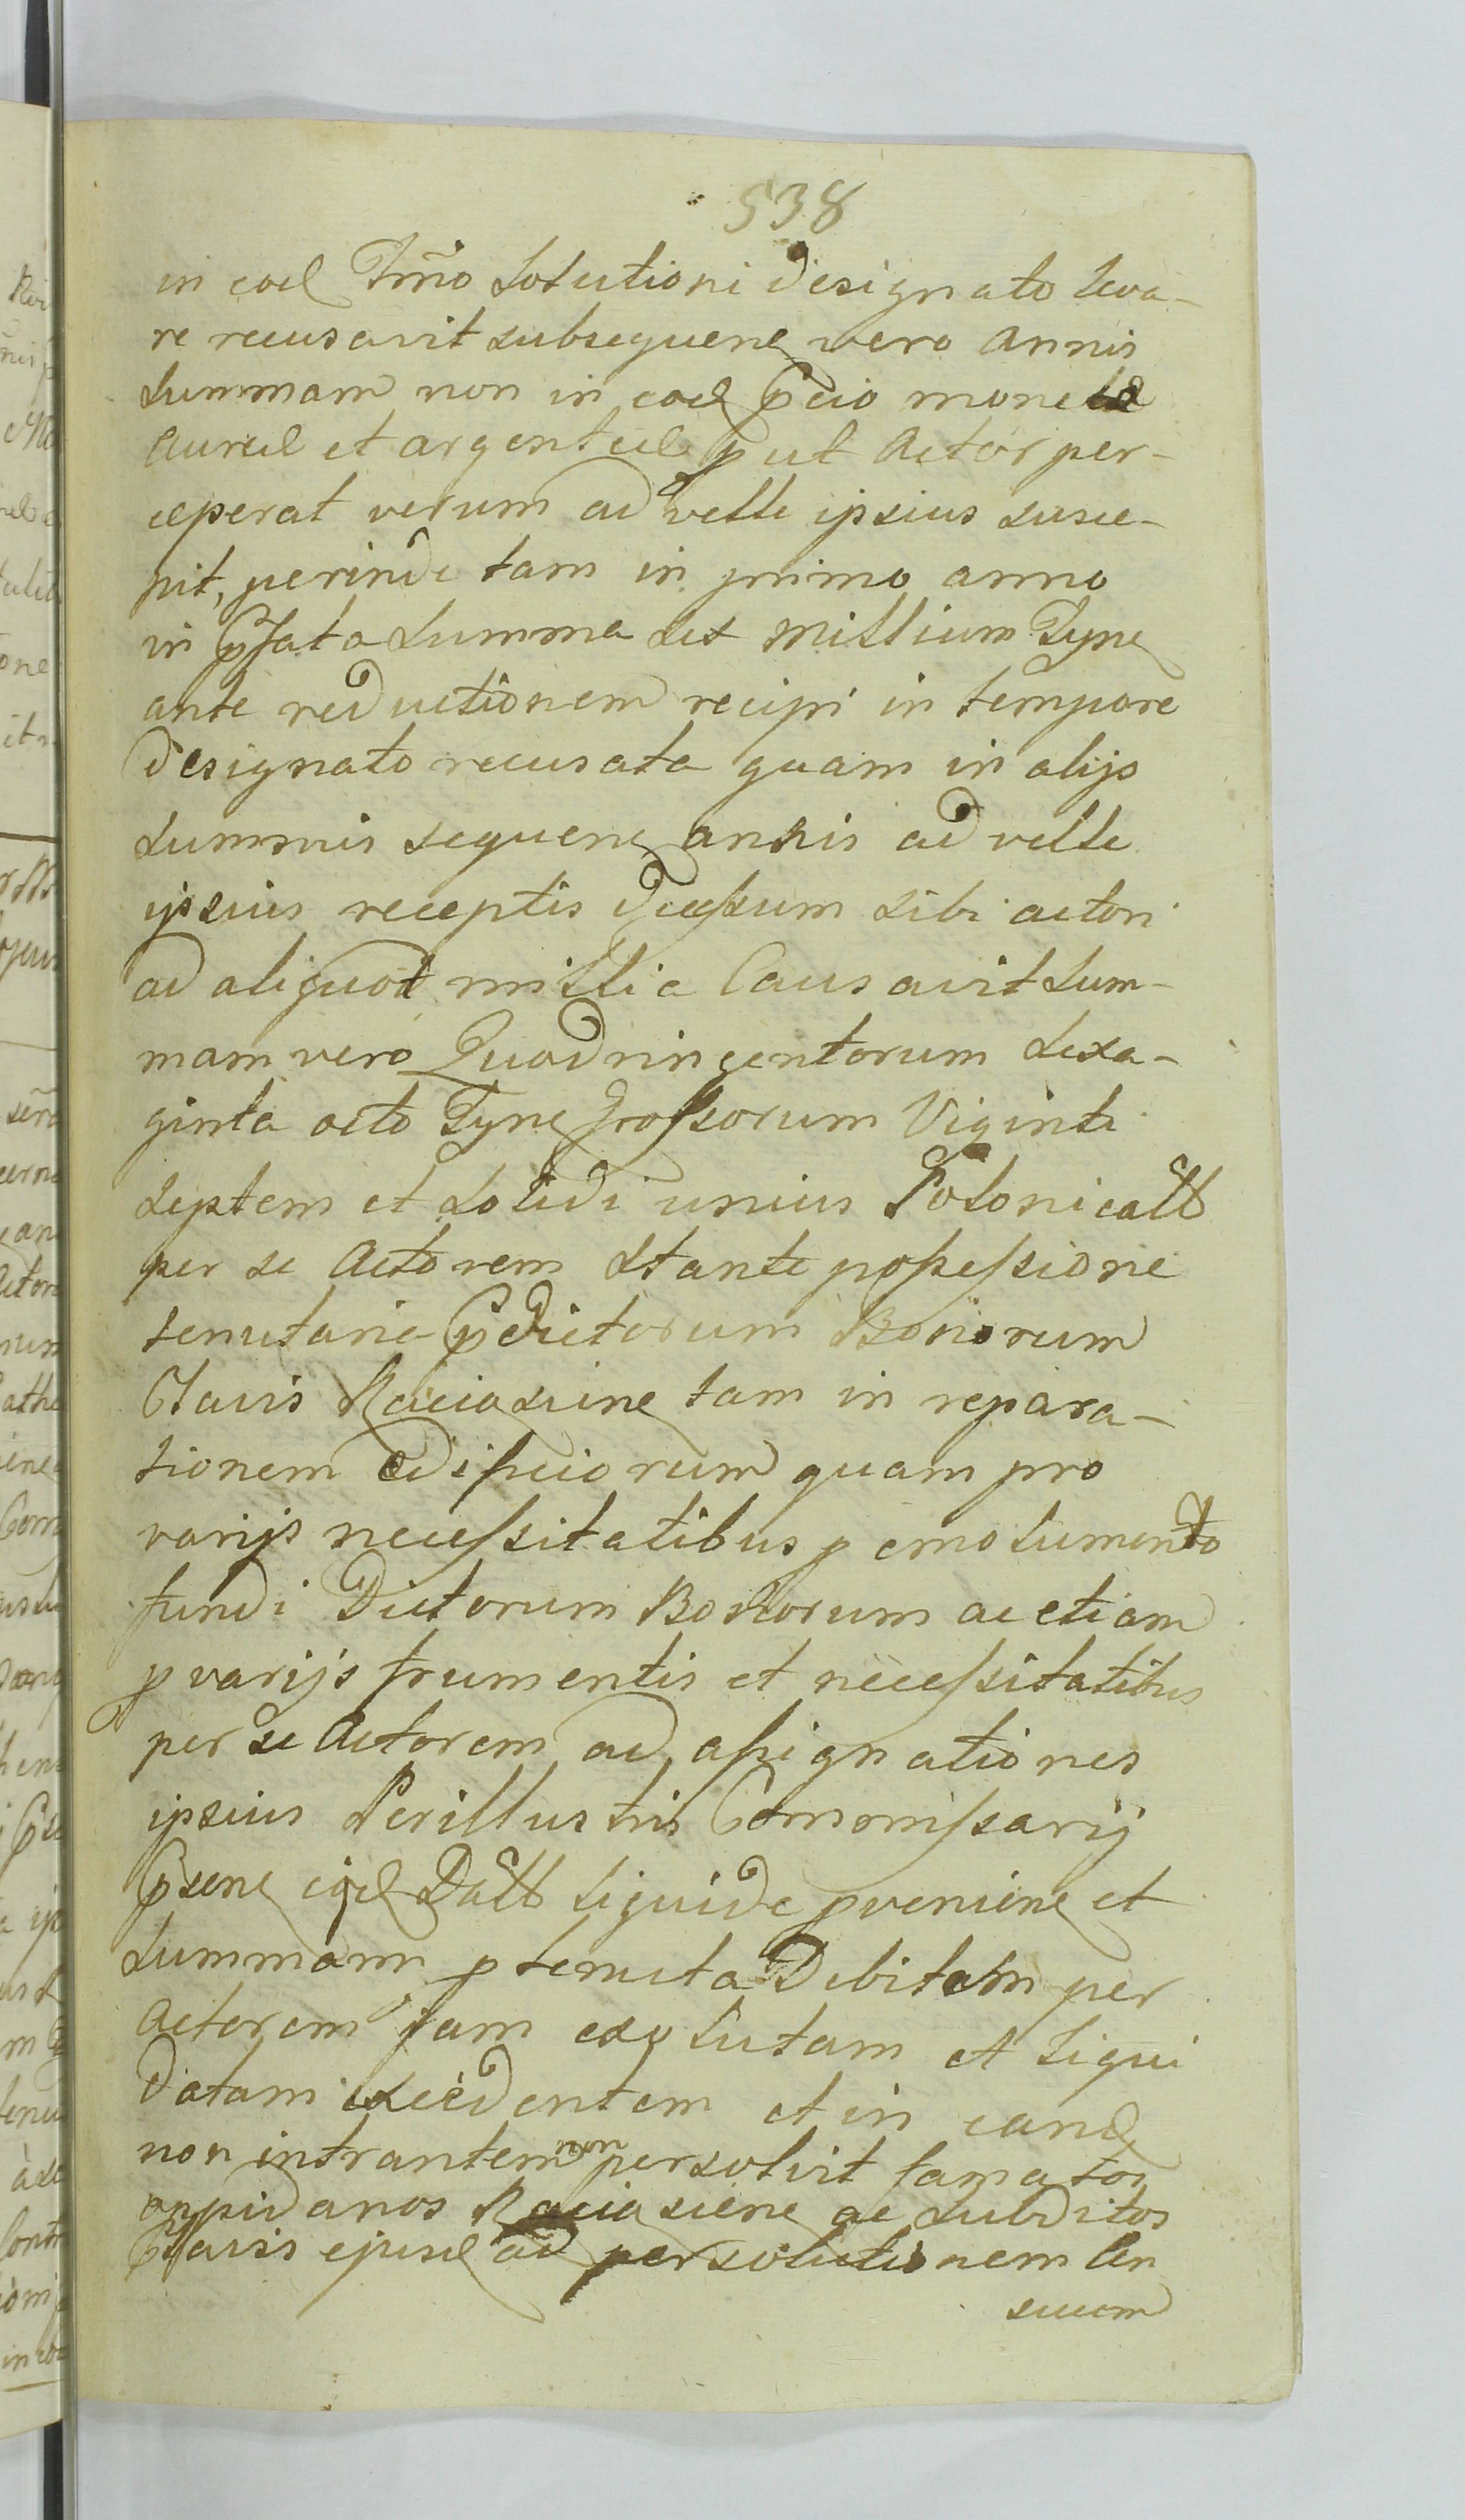 538
in eod Tmno Solutioni designato leva-
re recusavit subsequen vero Annis
Summam non in eod pcio moneta
Aureæ et argenteæ put Actor per-
ceperat verum ad velle ipsius susce-
pit, perinde tam in primo anno
in pfata Summa Sex Millium Tyne
ante reductionem recipi in tempore
designato recusata quam in alijs
Summis sequen annis ad velle
ipsius receptis decessum sibi actori
ad aliquot millia Causavit Sum-
mam vero Quadringentorum Sexa-
ginta octo Tyne Grossorum Viginti
Septem et Solidi unius Polonicall
per se Actorem Stante possessione
tenutaria pdictorum Bonorum
Clavis Raciasien tam in repara-
tionem ædificiorum quam pro
varijs necessitatibus p emolumento
fundi Dictorum Bonorum ac etiam
p varijs frumentis et necessitatibus
per se Actorem ad assignationes
ipsius Perillustris Commissarij
psen eid Datt liquide pvenien et
Summam p tenuta Debitam per
Actorem jam exolutam et liqui
datam excedentem et in eand
non intrantem non persolvit famatos
oppidanos Raciasien ac Subditos
Clavis ejusd ad persolutionem Cen
suum